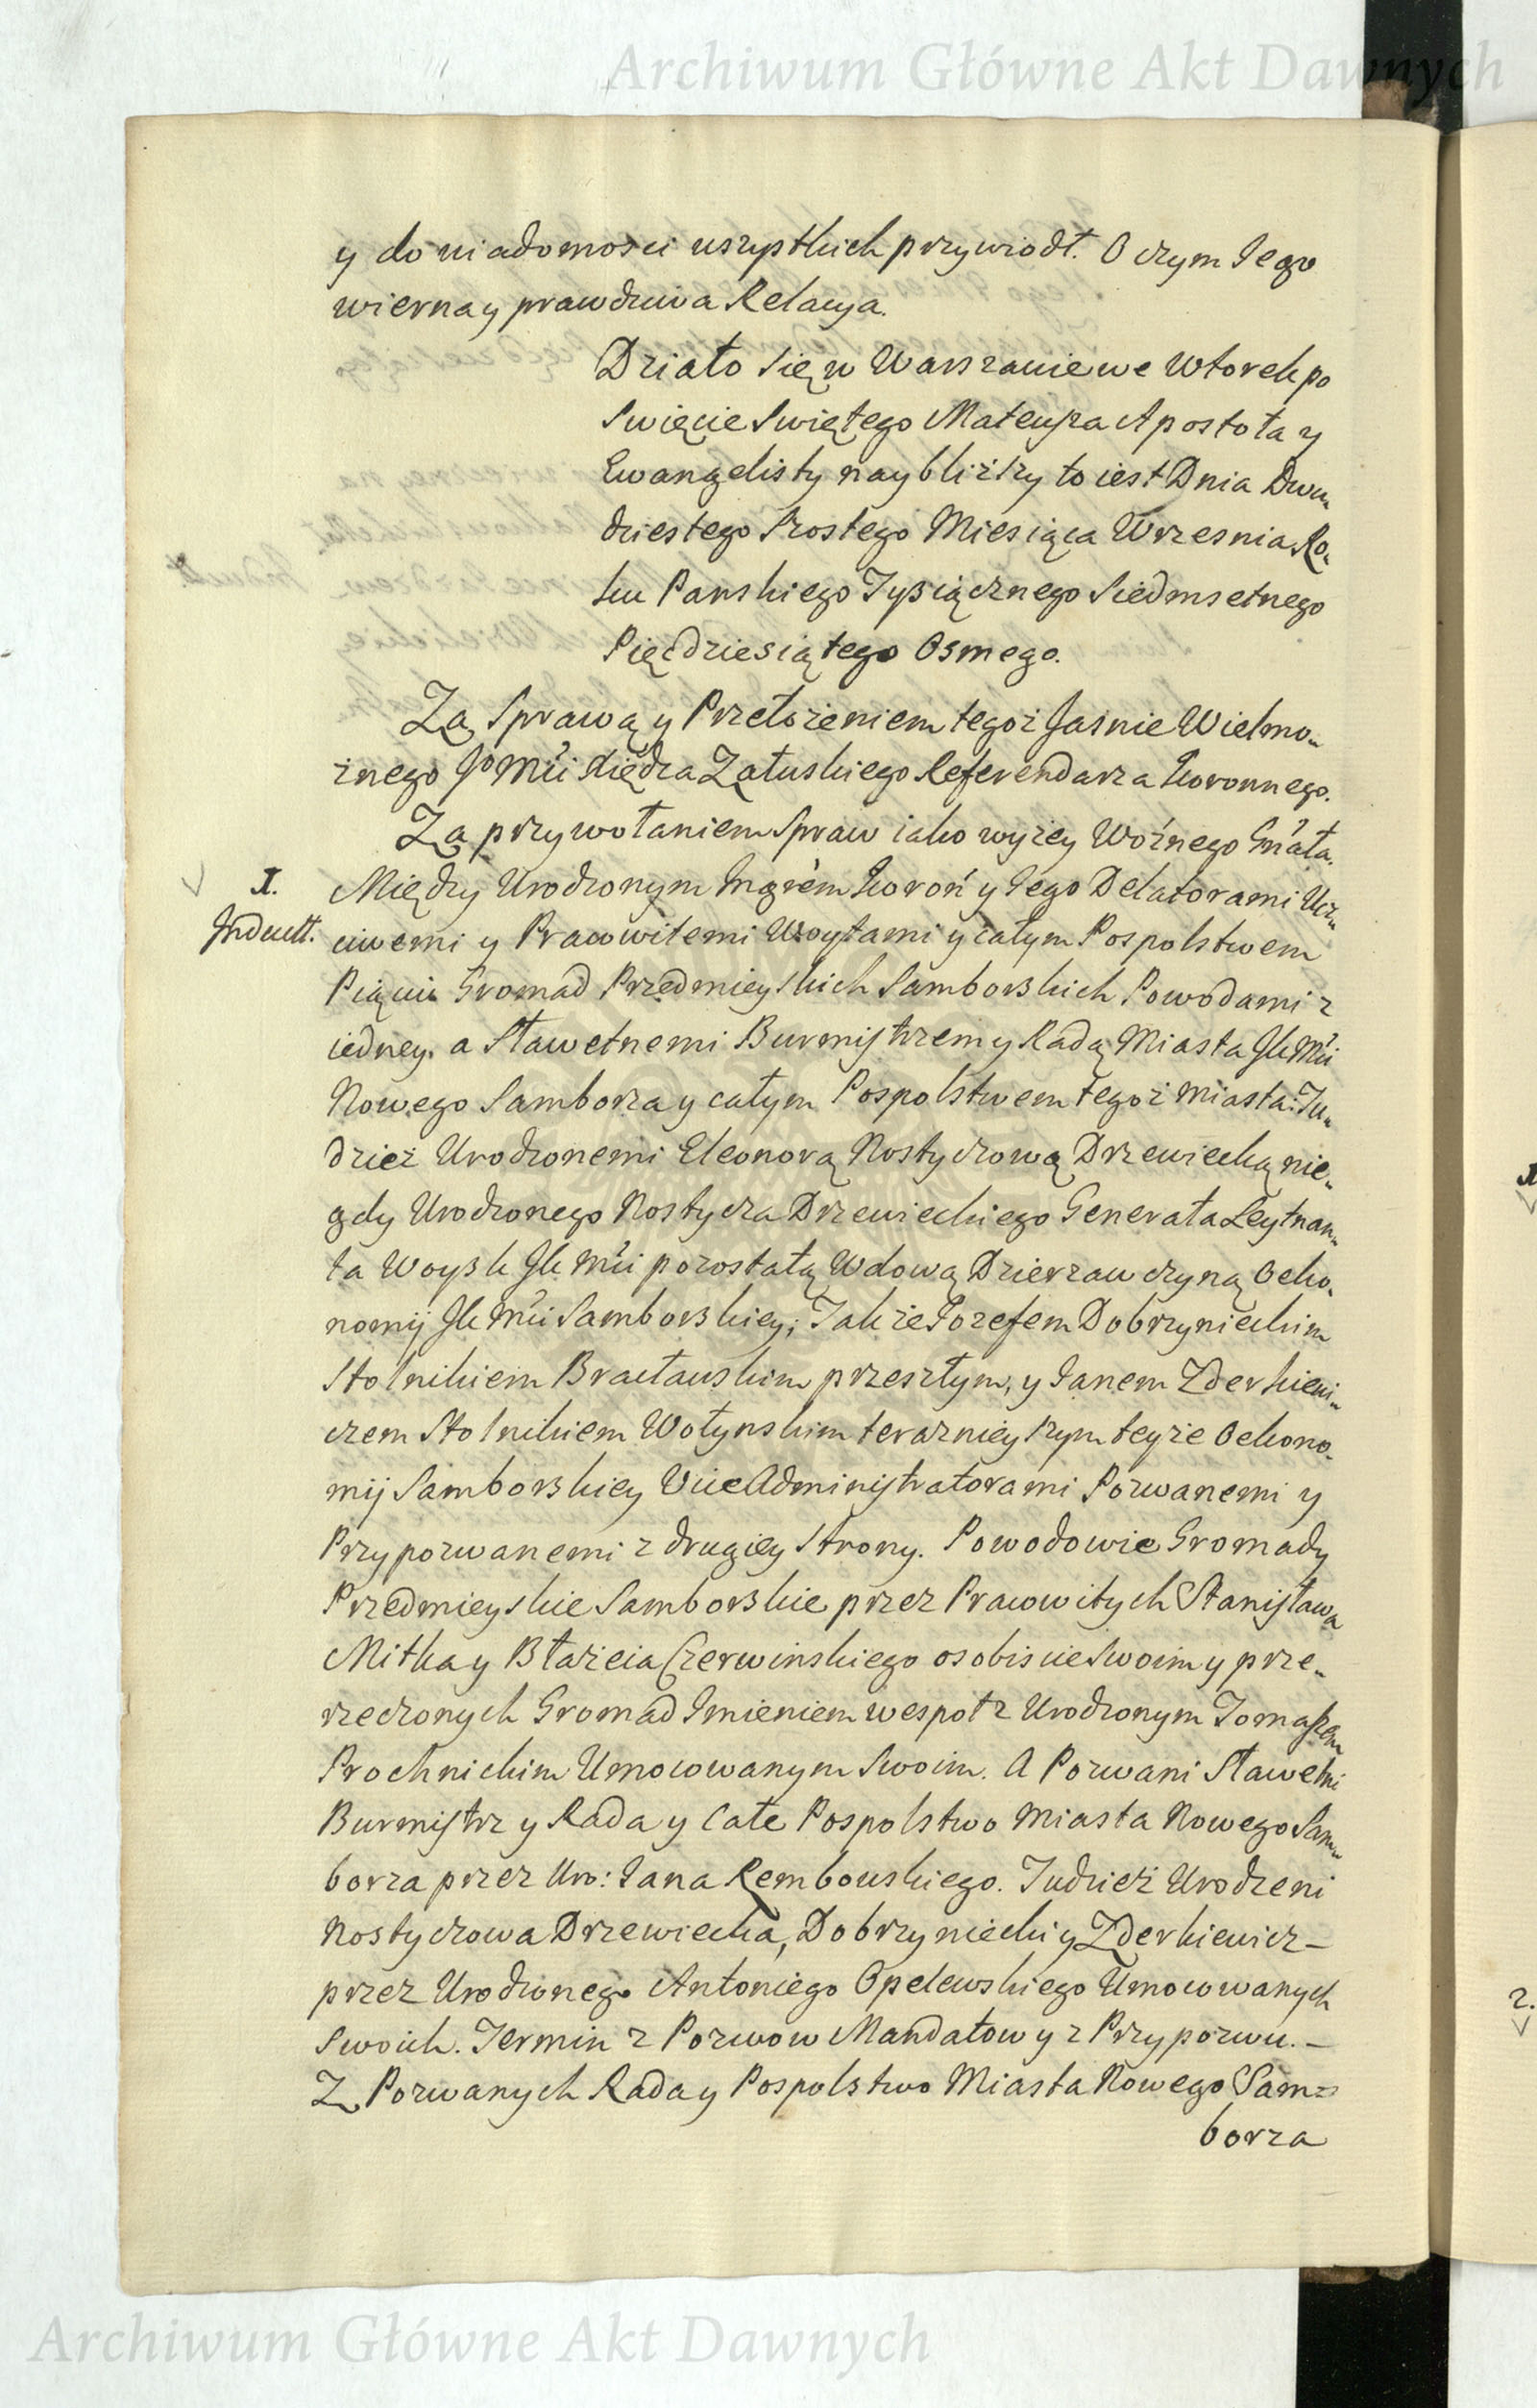 Archiwum Główne Akt Dawnych
y do wiadomosci wszystkich przywiodł. O czym Jego
wierna y prawdziwa Relacya.
Działo Się w Warszawie we Wtorek po
Swięcie Swiętego Mateusza Apostoła y
Ewangelisty naybliższy to iest Dnia Dwu„
dziestego Szostego Miesiąca Wrzesnia Ro„
ku Panskiego Tysiącznego Siedmsetnego
Pięcdziesiątego Osmego.
Za Sprawą y Przełożeniem tegoż Jasnie Wielmo„
żnego Jo Mci Xiędza Załuskiego Referendarza Koronnego.
Za przywołaniem Spraw iako wyżey Woźnego Gnała.
I. Między Urodzonym Ingrem Koroń y Jego Delatorami Ucz„
Indult. ciwemi y Prawowitemi Woytami y całym Pospolstwem
Piąciu Gromad Przedmieyskich Samborskich Powodami z
iedney. a Sławetnemi Burmistrzem y Radą Miasta JK Mci
Nowego Samborza y całym Pospolstwem tegoż miasta: Tu„
dzież Urodzonemi Eleonorą Nostyczową Drzewiecką nie„
gdy Urodzonego Nostycza Drzewieckiego Generała Leytnan„
ta Woysk JK Mci pozostałą Wdową Dzierzawczyną Oeko„
nomij JK Mci Samborskiey; Także Jozefem Dobrzynieckim
Stolnikiem Bracławskim przeszłym, y Janem Zderkiewi„
czem Stolnikiem Wołynskim teraznieyszym teyże Oekono„
mij Samborskiey ViceAdministratorami Pozwanemi y
Przypozwanemi z drugiey strony. Powodowie Gromady
Przedmieyskie Samborskie przez Prawowitych Stanisława
Mitka y Błażeia Czerwinskiego osobiscie Swoim y prze„
rzeczonych Gromad Imieniem wespoł z Urodzonym Tomaszem
Prochnickim Umocowanym Swoim. A Pozwani Sławetni
Burmistrz y Rada y Całe Pospolstwo Miasta Nowego Sam„
borza przez Uro: Jana Rembowskiego. Tudzież Urodzeni
Nostyczowa Drzewiecka, Dobrzyniecki y Zderkiewicz –
przez Urodzonego Antoniego Opelewskiego Umocowanych
Swoich. Termin z Pozwow Mandatow y z Przypozwu. –
Z Pozwanych Rada y Pospolstwo Miasta Nowego Sam=
borza
2.
Archiwum Główne Akt Dawnych